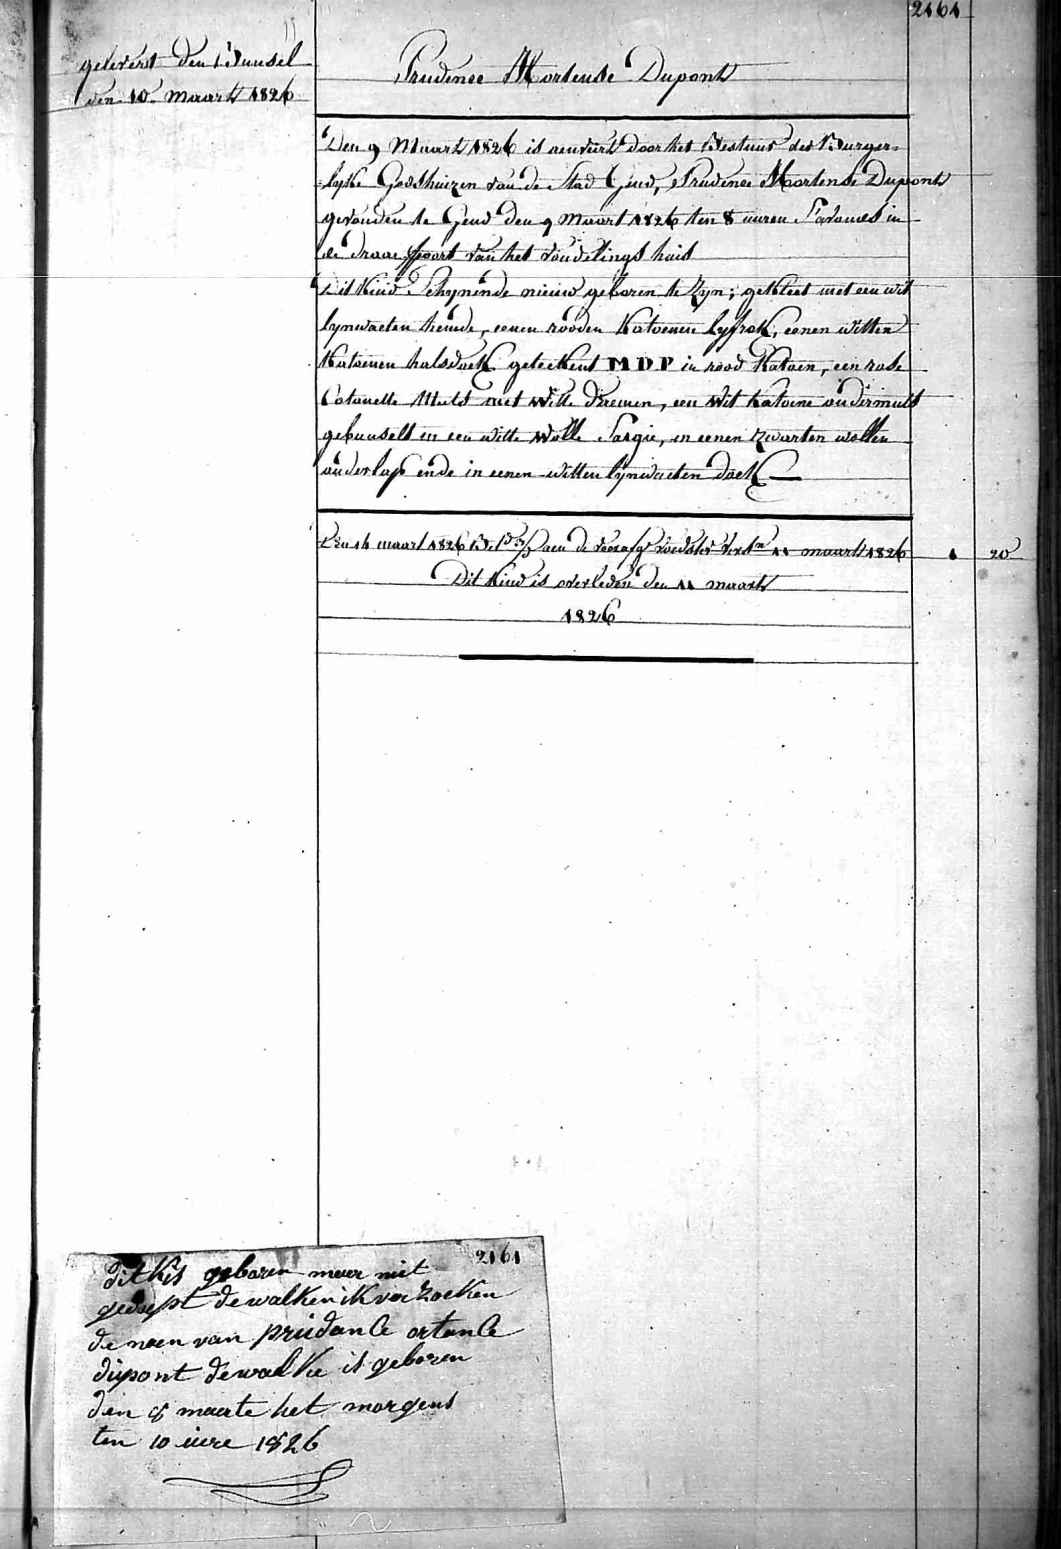 2161
gelevert den Bunsel
den 10 maart 1826
Prudence Hortense Dupont
Den 9 Maart 1826 is aenveirt door het Bestuur der Burger-
lyke Godshuizen van de Stad Gend, Prudence Hortense Dupont
gevonden te Gend den 9 Maart 1826 ten 8 uuren S'avonds in
de draaypoort van het vondelings huis
Dit Kind Schynende nieuw geboren te Zyn; gekleet met een wit
lynwaeten hemde, eenen rooden Katoenen lyfrok, eenen witten
Katoenen halsdoek geteekent MDP in rood Katoen, een rose
Cotonette Muts met witte driemen, een Wit Katoene ondermuts
gebunselt in een witte Wolle Sargie, en eenen zwarten wollen
onderlap ende in eenen witten lynwaeten doek
Den 16 maart 1826 aen de voedster 11 maart 1826 20
Dit Kind is overleden den 11 maart
1826
2161
dit kis geboren maer niet
gedoept de walken ik verzoeken
de naen van prudance ortance
dupont de walke is geboren
den 8 maarte het morgens
ten 10 uere 1826